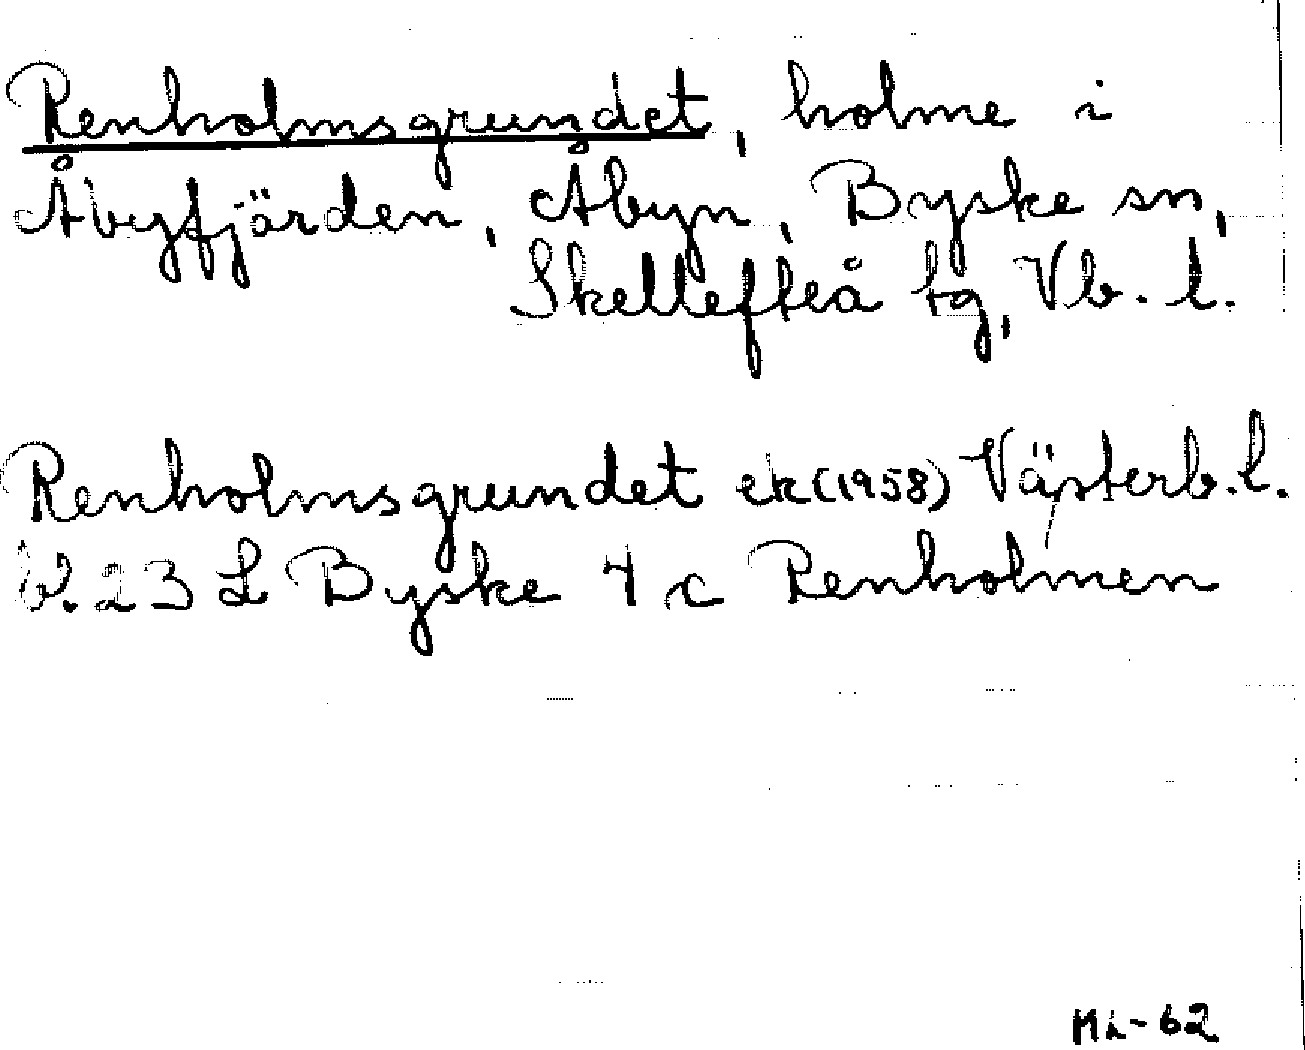 Renholmsgrundet, holme i
Åbyfjärden, Åbyn, Byske sn,
Skellefteå tg, Vb. l.
Renholmsgrundet ek(1958) Västerb. l.
bl. 23 L Byske 4 c Renholmen
ML-62